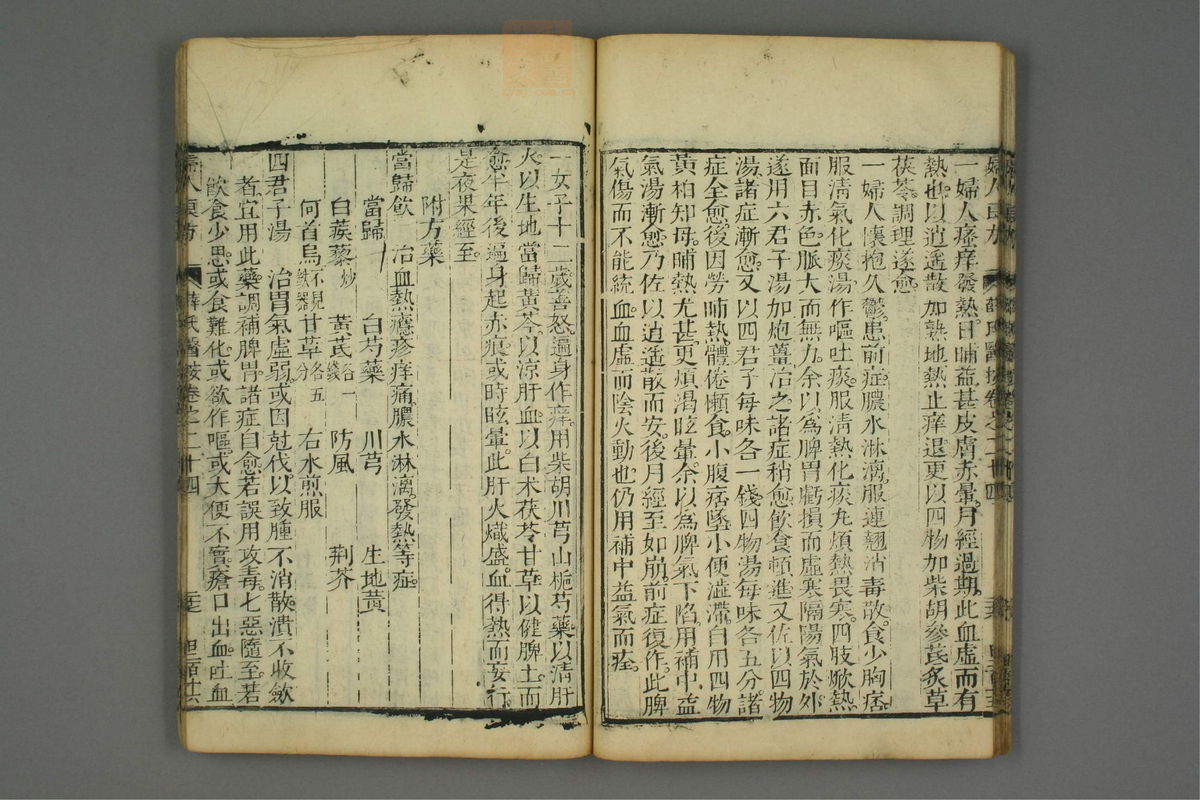 婦人良方
薛氏醫按卷之二十四
一婦人瘙痒發熱日晡益甚皮膚赤暈月經過期此血虛而有
熱也以逍遙散加熟地熱止痒退更以四物加柴胡參芪炙草
茯苓調理遂愈
一婦人懷抱久鬱患前症膿水淋漓服連翹消毒散食少胸痞
服清氣化痰湯作嘔吐痰服清熱化痰丸煩熱畏寒四肢厥熱
面目赤色脈大而無力余以為脾胃虧損而虛寒隔陽氣於外
遂用六君子湯加炮薑治之諸症稍愈飲食頓進又佐以四物
湯諸症漸愈又以四君子每味各一錢四物湯每味各五分諸
症全愈後因勞晡熱體倦懶食小腹痞墜小便澁滯自用四物
黃柏知母晡熱尤甚更煩渴眩暈余以為脾氣下陷用補中益
氣湯漸愈乃佐以逍遙散而安後月經至如崩前症復作此脾
氣傷而不能統血血虛而陰火動也仍用補中益氣而痊
一女子十二歲善怒遍身作痒用柴胡川芎山梔芍藥以清肝
火以生地當歸黃芩以涼肝血以白朮茯苓甘草以健脾土而
愈半年後遍身起赤痕或時眩暈此肝火熾盛血得熱而妄行
是夜果經至
附方藥
當歸飲 治血熱癮疹痒痛膿水淋漓發熱等症
當歸 白芍藥 川芎 生地黃
白蒺藜炒 黃芪各一錢 防風 荆芥
何首烏不見鉄器 甘草各五分 右水煎服
四君子湯 治胃氣虛弱或因尅伐以致腫不消散潰不收斂
者宜用此藥調補脾胃諸症自愈若誤用攻毒七惡隨至若
飲食少思或食難化或欲作嘔或大便不實瘡口出血吐血
婦人良方
薛氏醫按卷之二十四